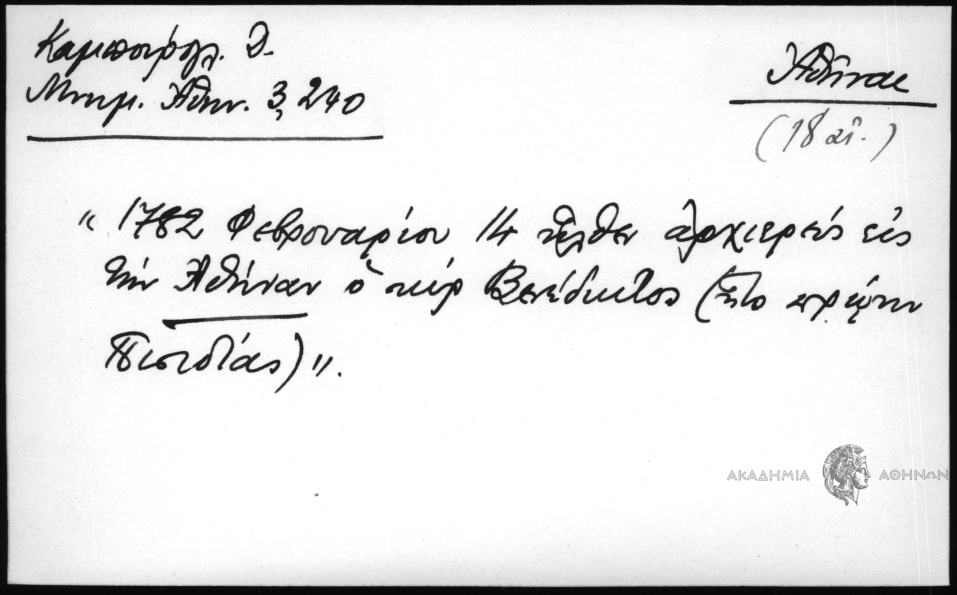 Καμπούρογλ. Δ.
Μνημ. Ἀθην. 3, 240
Ἀθῆναι
(18 αἰ.)
" 1782 Φεβρουαρίου 14 ἦλθεν ἀρχιερεύς εἰς
τὴν Ἀθήναν ὁ κύρ Βενέδικτος (ἦτο πρώην
Πισιδίας)".
ΑΚΑΔΗΜΙΑ ΑΘΗΝΩΝ